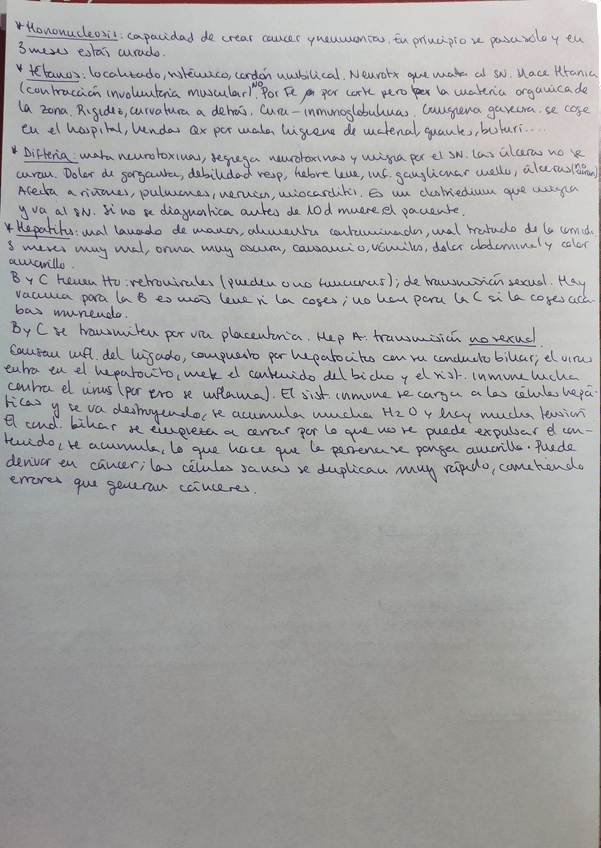 * Mononucleosis: capacidad de crear cancer y neumonias. En principio se pasa solo y en
3 meses estás curado.
* Tétanos: localizado, sistémico, cordón umbilical. Neurotx que mata al SN. Hace tetania
(contracción involuntaria muscular). NO Por Fe por corte pero por la materia organica de
la zona. Rigidez, curvatura a detrás. Cura - inmunoglobulinas. Gangrena gaseosa. se coge
en el hospital, tiendas Qx por mala higiene de material, guantes, bisturí....
* Difteria: mata neurotoxinas, segrega neurotoxinas y migra por el SN. Las úlceras no se
curan. Dolor de garganta, debilidad resp, fiebre leve, inf. ganglionar cuello, úlceras (no curan).
Afecta a riñones, pulmones, nervios, miocarditis. Es un clostridium que migra
y va al SN. Si no se diagnostica antes de 10d muere el paciente.
* Hepatitis: mal lavado de manos, alimentos contaminados, mal tratado de la comida.
3 meses muy mal, orina muy oscura, cansancio, vómitos, dolor abdominal y color
amarillo.
B y C tienen : retrovirales (pueden o no funcionar); de transmisión sexual. Hay
vacuna para la B es más leve si la coges; no hay para la C si la coges aca-
bas muriendo.
B y C se transmiten por vía placentaria. Hep A: transmisión no sexual.
Causan infl. del hígado, compuesto por hepatocitos con su conducto biliar; el virus
entra en el hepatocito, mete el contenido del bicho y el sist. inmune lucha
contra el virus (por eso se inflama). El sist. inmune se carga a las células hepá-
ticas y se va destruyendo, se acumula mucha H2O y hay mucha tensión
El cond. biliar se empieza a cerrar por lo que no se puede expulsar el con-
tenido, se acumula, lo que hace que la persona se ponga amarilla. Puede
derivar en cáncer; las células sanas se duplican muy rápido, cometiendo
errores que generan cánceres.